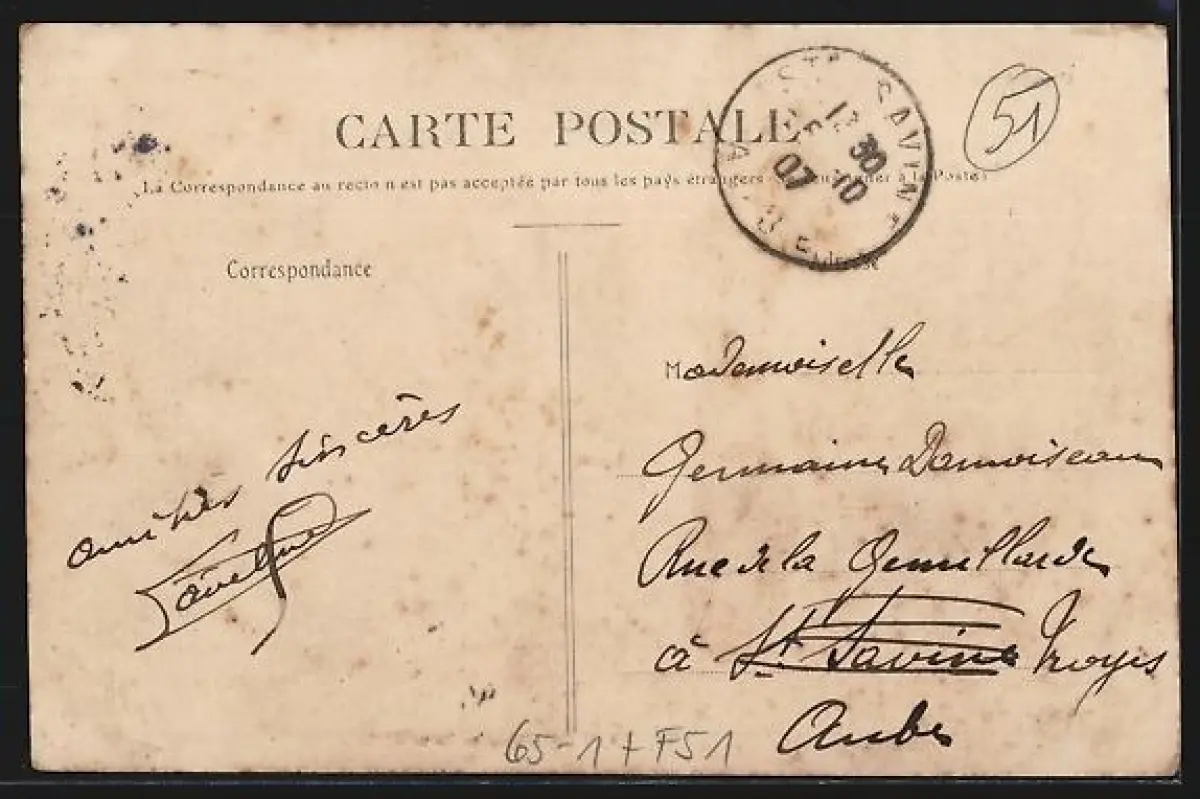 CARTE POSTALE
La Correspondance au recto n'est pas acceptée par tous les pays étrangers
à la Poste
STE SAVINE
12 30
6 -10
07
AUBE
51
Correspondance
Adresse
Mademoiselle
Germaine Damoiseau
Rue de la
à St. Savine Troyes
Aube
amitiés sincères
65-1+F51